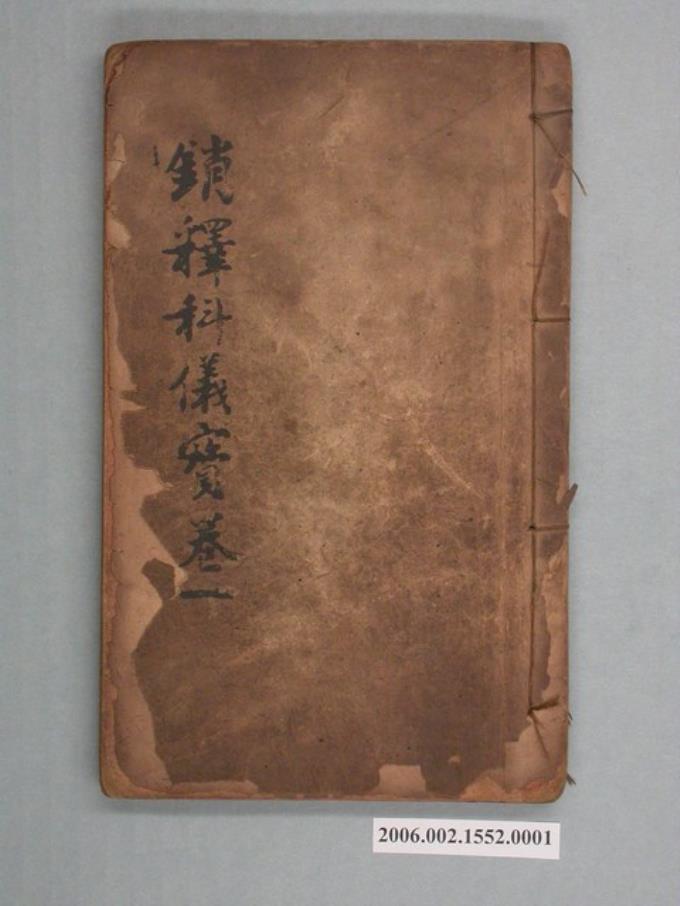 鎖釋科儀寳卷一
2006.002.1552.0001